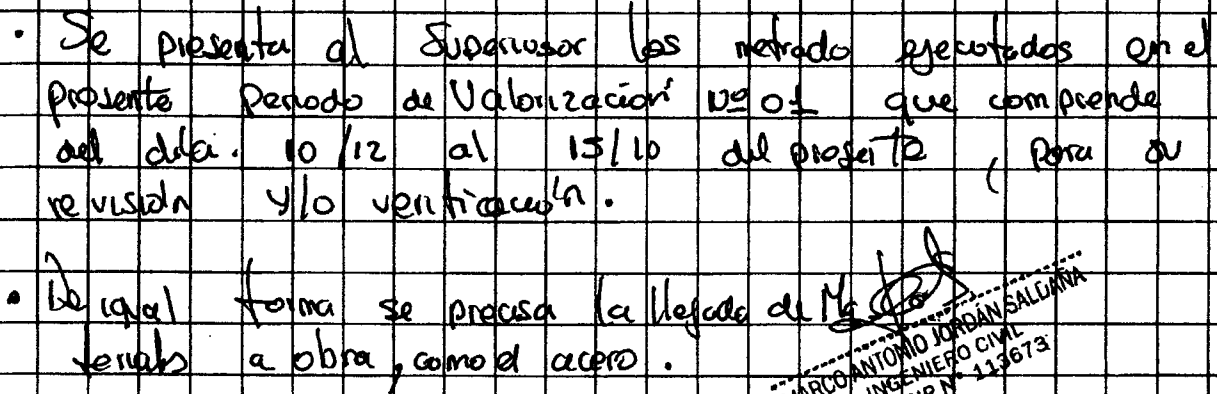 • Se presenta al Supervisor los metrado ejecutados en el
presente Periodo de Valorización Nº 01 que comprende
del día. 10/12 al 15/10 del presente, para su
revisión y/o verificación.
• De igual forma se precisa la llegada de Ma
teriales a obra, como el acero.
MARCO ANTONIO JORDAN SALDAÑA
INGENIERO CIVIL
Nº 113673